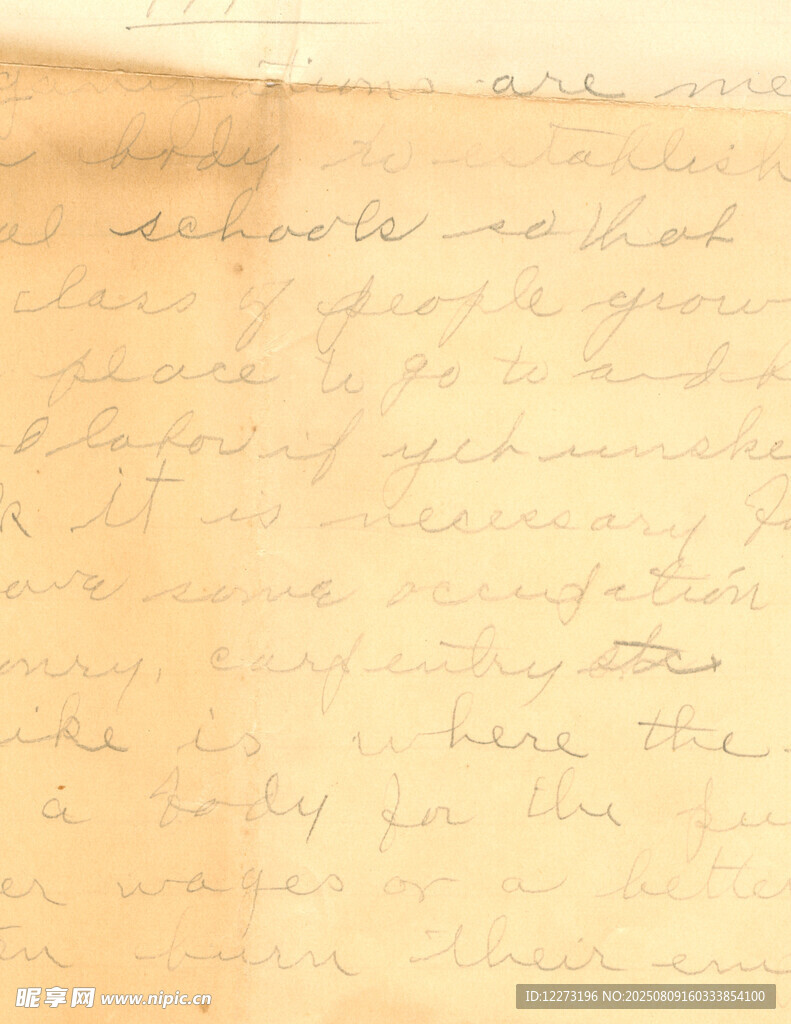 ganizations are me
body to establish
al schools so that
class of people grow
place to go to and k
d labor if yet unske
k it is necessary fo
ave some occupation
onry, carpentry etc.
ike is where the
a body for the pu
er wages or a better
en burn their em
昵享网 www.nipic.cn
ID:12273196 NO:20250809160333854100